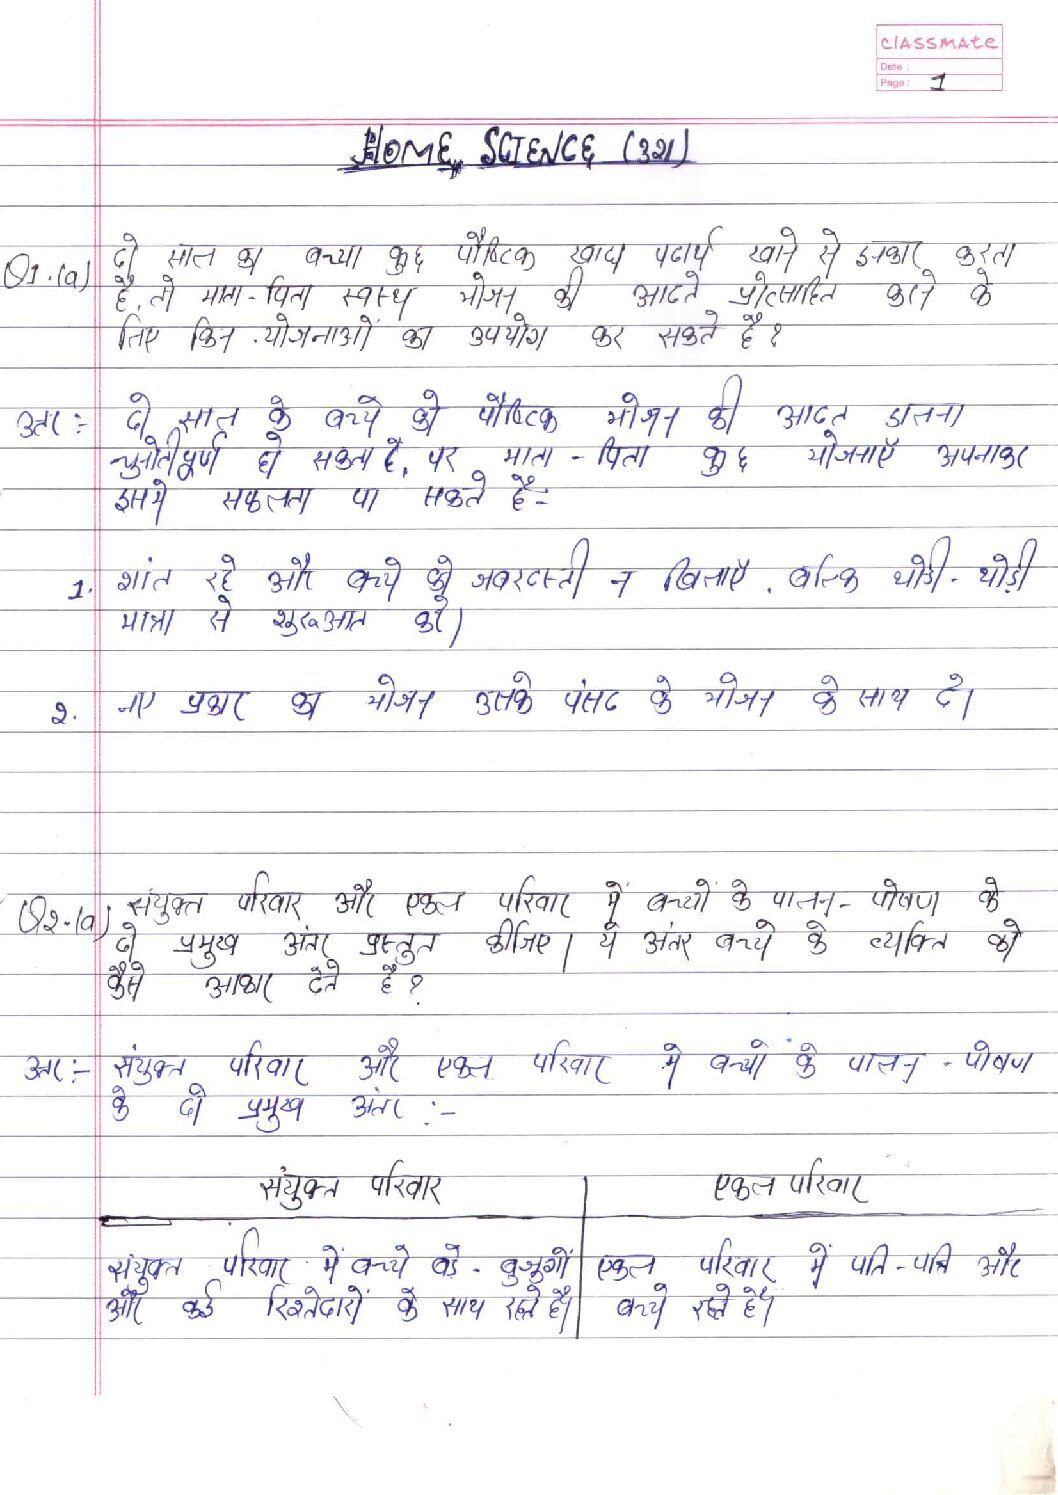 classmate
Date :
Page : 1
HOME SCIENCE (321)
Q1.(a) दो साल का बच्चा कुछ पौष्टिक खाद्य पदार्थ खाने से इनकार करता
है, तो माता-पिता स्वस्थ भोजन की आदते प्रोत्साहित करने के
लिए किन योजनाओं का उपयोग कर सकते है ?
उतर :- दो साल के बच्चे को पौष्टिक भोजन की आदत डालना
चुनोतीपूर्ण हो सकता है, पर माता - पिता कुछ योजनाएँ अपनाकर
इसमे सफलता पा सकते है:-
1. शांत रहे और बच्चे को जबरदस्ती न खिलाएँ, बल्कि थोडी - थोड़ी
मात्रा से शुरूआत करे।
2. नए प्रकार का भोजन उसके पंसद के भोजन के साथ दे।
Q2.(a) संयुक्त परिवार और एकल परिवार में बच्चों के पालन - पोषण के
दो प्रमुख अंतर प्रस्तुत कीजिए। ये अंतर बच्चे के व्यक्ति को
कैसे आकार देते है ?
उतर :- संयुक्त परिवार और एकल परिवार मे बच्चों के पालन - पोषण
के दो प्रमुख अंतर :-
संयुक्त परिवार एकल परिवार
संयुक्त परिवार में बच्चे बडे - बुजुर्गो एकल परिवार में पति - पत्नि और
और कई रिश्तेदारों के साथ रहते है। बच्चे रहते है।